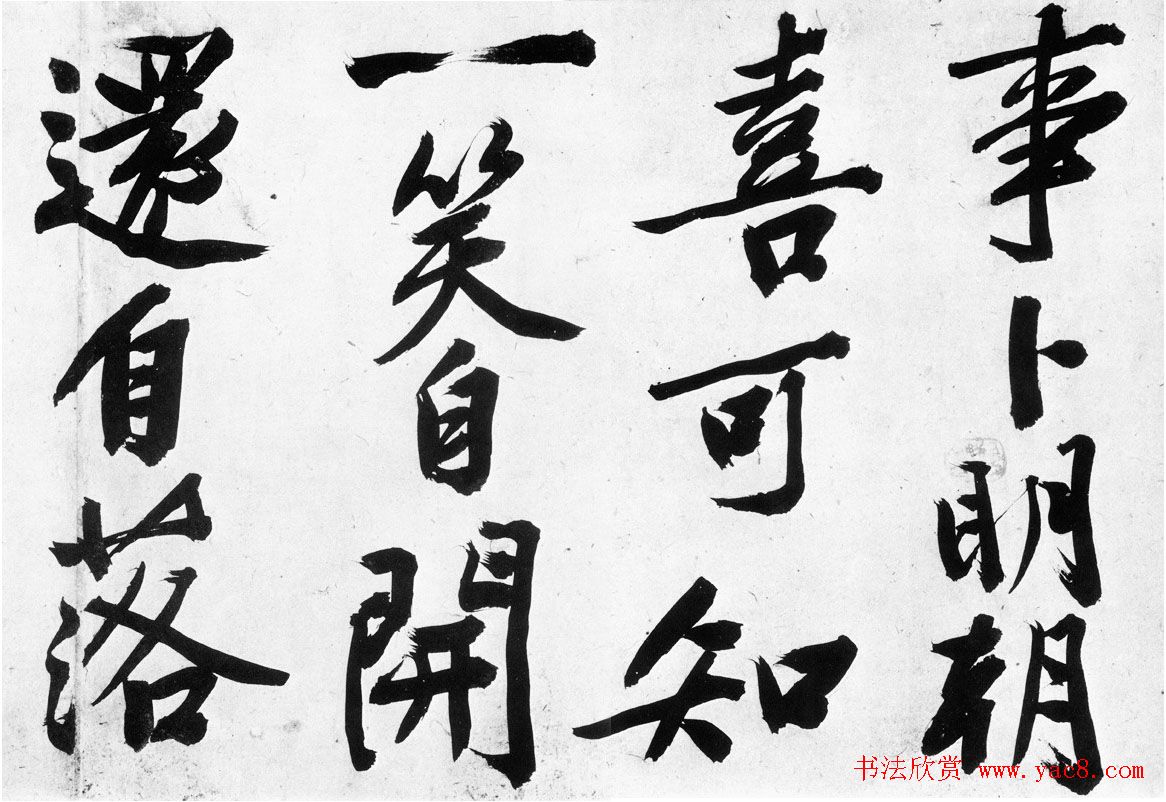 事卜明朝
喜可知
一笑自開
還自落
书法欣赏 www.yac8.com